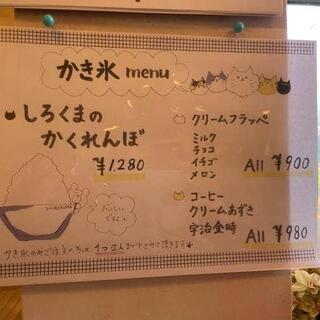 かき氷 menu
しろくまの
かくれんぼ
¥1,280
おいしい
ですよ
かき氷のみご注文の方は、1つ2人までとさせて頂きます
クリームフラッペ
ミルク
チョコ
イチゴ
メロン
All ¥900
コーヒー
クリームあずき
宇治金時
All ¥980